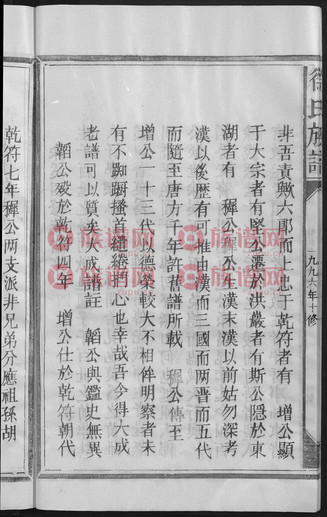 徐氏族譜
一九九六年十修
非吾責歟六郎而上忠于乾符者有 增公顯
于大宗者有堅公粟於洪嚴者有斯公隱於東
湖者有 穉公公不生漢末漢以前姑勿深考
漢以後歷有可推由漢而三國而兩晋而五代
而隨至唐方千年許舊譜所載 穉公傳至
增公一十三代以德築較大不相侔明察者未
有不踟蹰搔首繾綣捫心也幸哉吾今得大成
老譜可以質矣大成譜註 韜公與鑑史無異
韜公歿於乾符四年 增公仕於乾符朝代
乾符七年穉公兩支派非兄弟分應祖孫胡